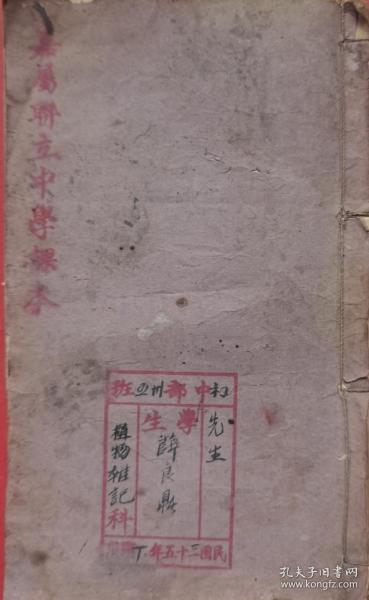 屬聯立中學課本
初中部卅四班
先生
學生 薛良鼎
植物雜記科
民國三十五年 下
孔夫子旧书网